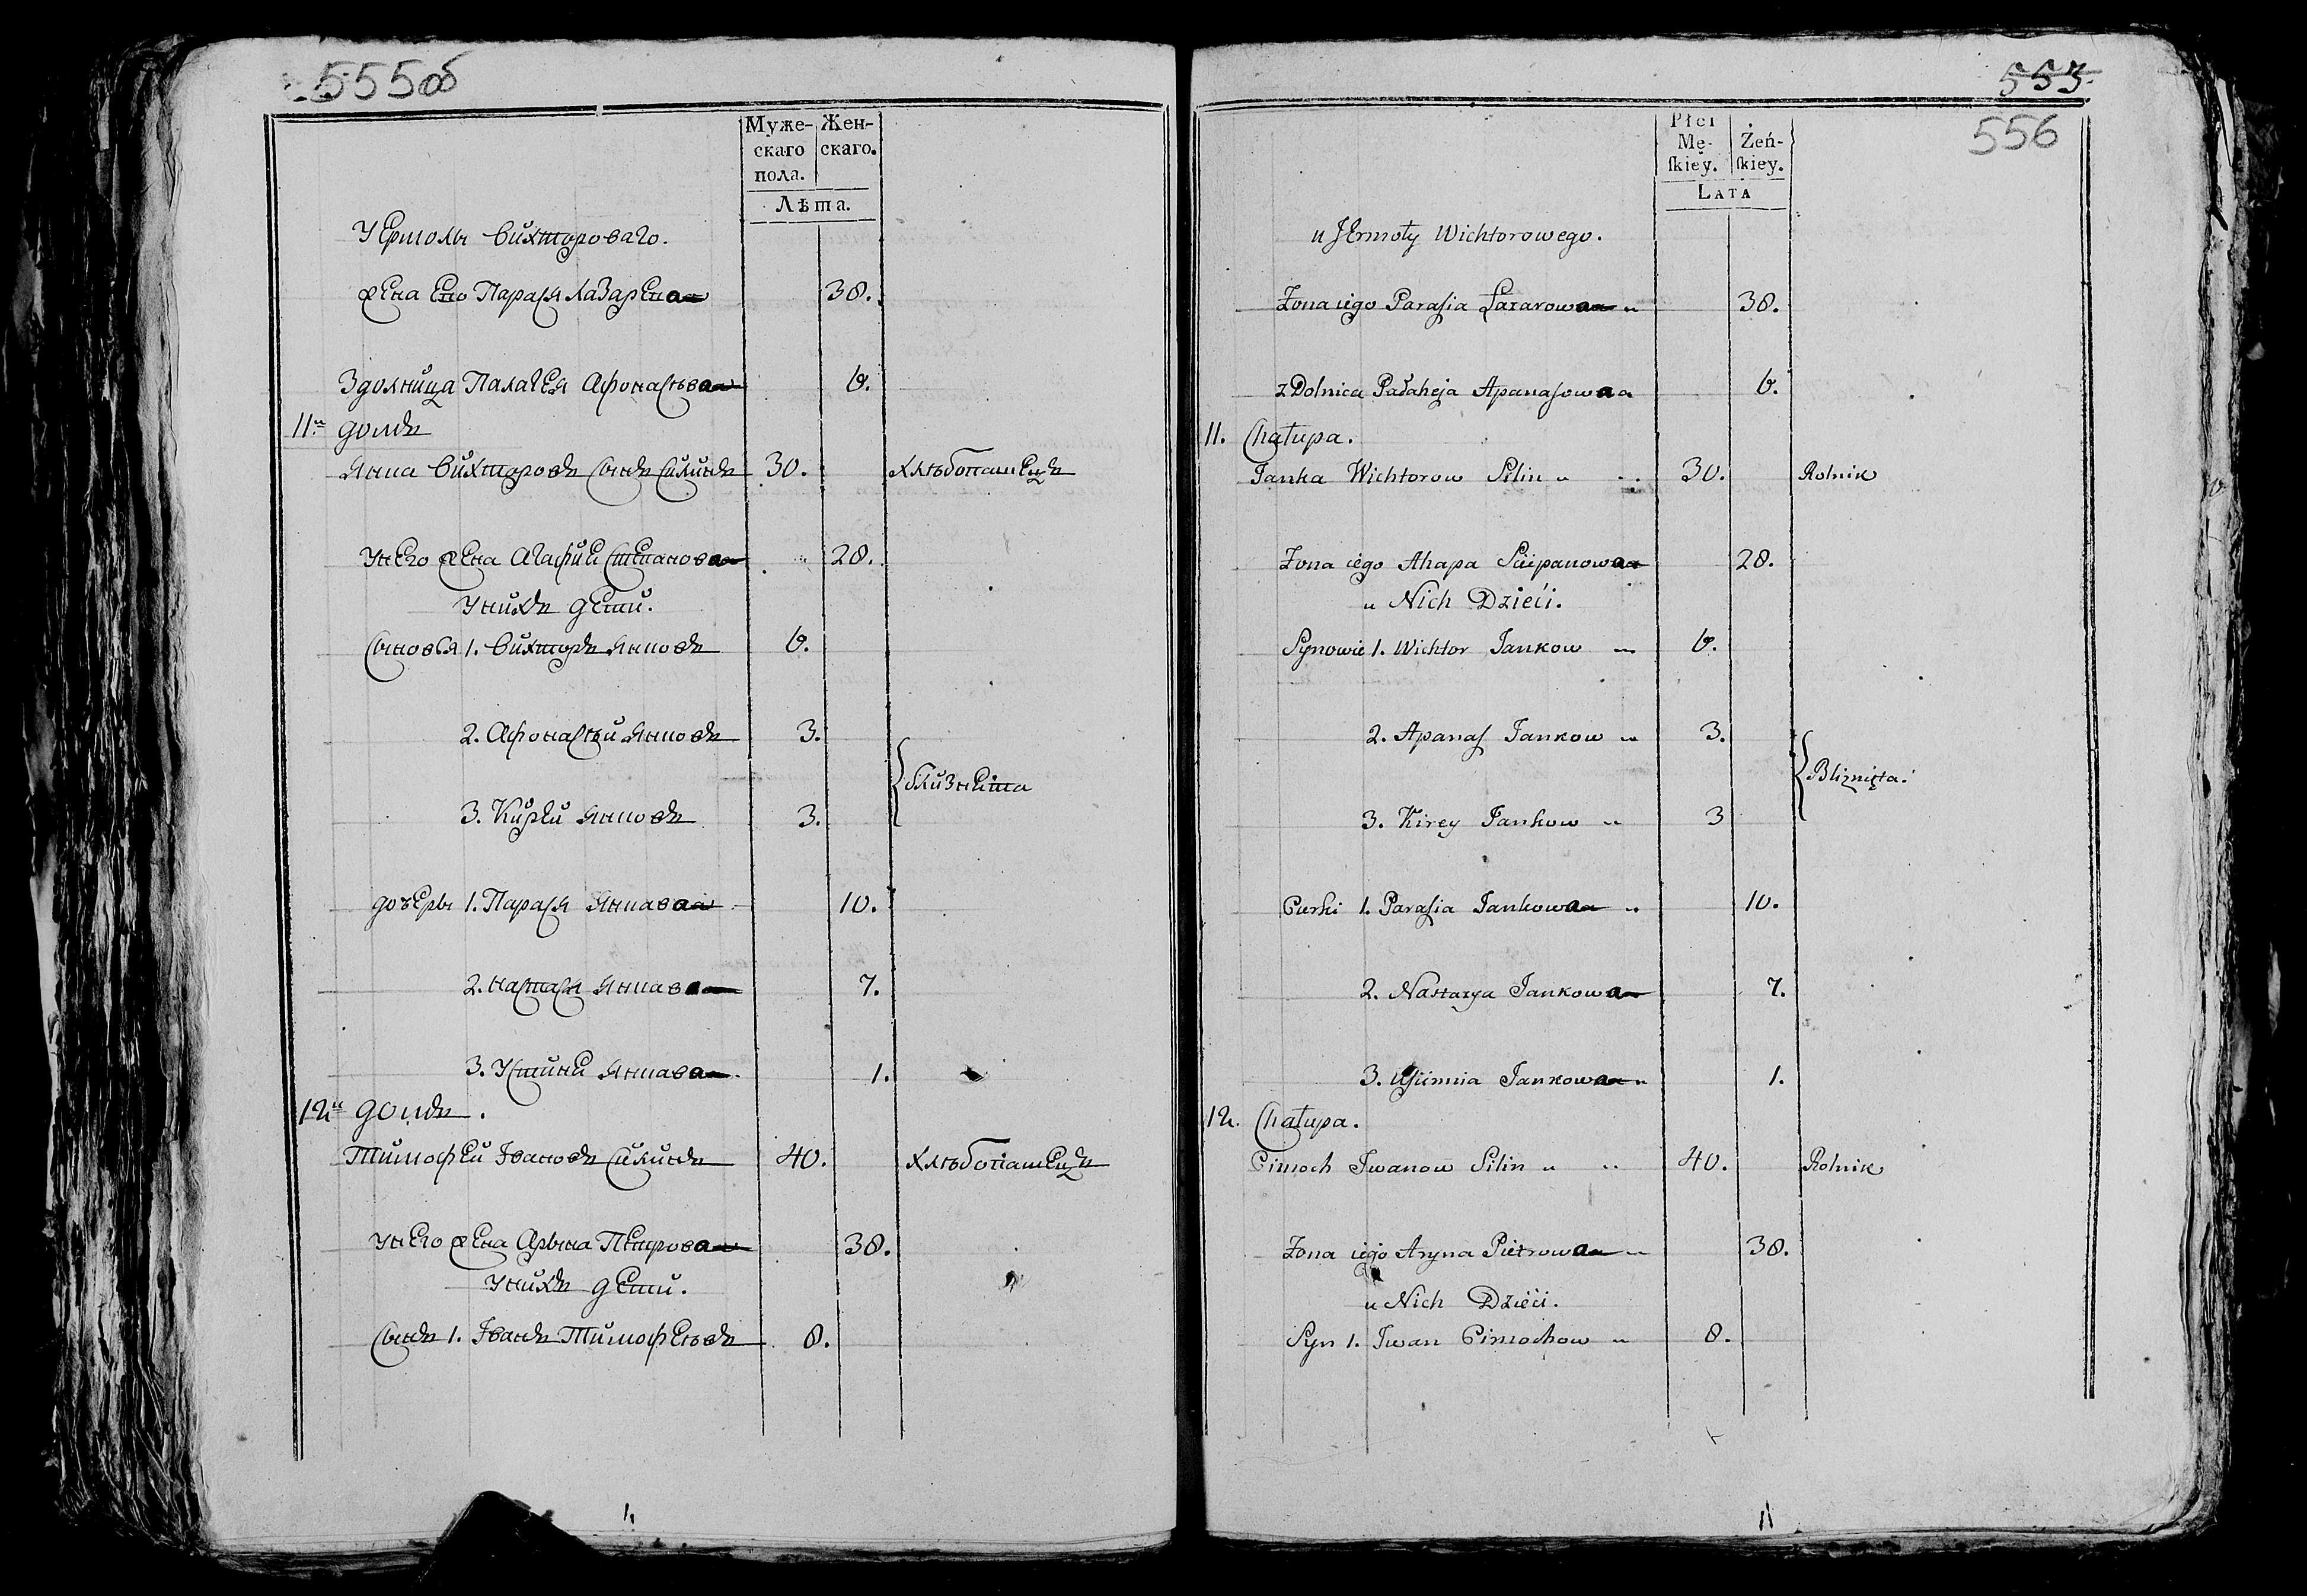 555об
Муже- Жен-
скаго скаго.
пола.
Лѣта.
У Ермолы Вихторова́го.
жена Его Парася Лазарева 38.
Здолница Палагея Афонасьва 6.
11й домъ
Янка Вихторовъ Сынъ Силинъ 30. хлѣбопашецъ
Унего жена Агафия Степанова 28.
Унихъ дети.
Сыновья 1. Вихторъ Янковъ 6.
2. Афонасѣй Янковъ 3.
близнята
3. Кирей Янковъ 3.
дочеры 1. Парася Янкава 10.
2. настася Янкава 7.
3. Устиня Янкава 1.
12й домъ.
Тимофей Ивановъ Силинъ 40. хлѣбопашецъ
Унего жена Арына Петрова 38.
Унихъ дети.
Сынъ 1. Иванъ Тимофеѣвъ 8.
553.
556
Płci
Mę- Żeń-
ſkiey. ſkiey.
LATA
u JErmoły Wichtorowego.
Żona iego Paraſia Łazarowa 38.
zDolnica Pałaheja Apanaſowa 6.
11. Chałupa.
Janka Wichtorow Silin 30. Rolnik
Żona iego Ahapa Sciepanowa 28.
u Nich Dzieci.
Synowie 1. Wichtor Jankow 6.
2. Apanaſ Jankow 3.
Bliznięta.
3. Kirey Jankow 3
Curki 1. Paraſia Jankowa 10.
2. Nastazya Jankowa 7.
3. Uſcimia Jankowa 1.
12. Chałupa.
Cimoch Jwanow Silin 40. Rolnik
Żona iego Aryna Pietrowa 38.
u Nich Dzieci.
Syn 1. Jwan Cimochow 8.